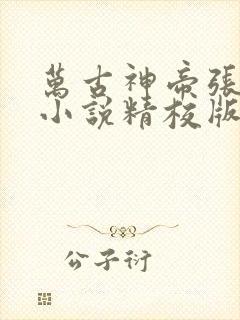 萬古神帝張
小說精校版
公子衍